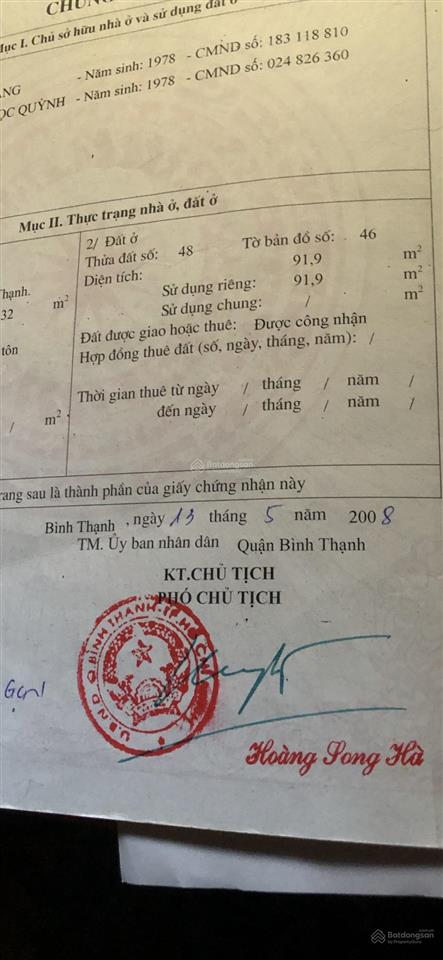 CHỨNG
Mục I. Chủ sở hữu nhà ở và sử dụng đất ở
NG - Năm sinh: 1978 - CMND số: 183 118 810
ỌC QUỲNH - Năm sinh: 1978 - CMND số: 024 826 360
Mục II. Thực trạng nhà ở, đất ở
2/ Đất ở
Thửa đất số: 48 Tờ bản đồ số: 46
Diện tích: 91,9 m²
Thạnh. Sử dụng riêng: 91,9 m²
32 m² Sử dụng chung: / m²
tôn Đất được giao hoặc thuê: Được công nhận
Hợp đồng thuê đất (số, ngày, tháng, năm): /
Thời gian thuê từ ngày / tháng / năm /
/ m² đến ngày / tháng / năm /
rang sau là thành phần của giấy chứng nhận này
Bình Thạnh, ngày 13 tháng 5 năm 2008
TM. Ủy ban nhân dân Quận Bình Thạnh
KT.CHỦ TỊCH
PHÓ CHỦ TỊCH
U.B.N.D Q.BÌNH THẠNH-TP
Hoàng Song Hà
Batdongsan
Batdongsan
by PropertyGuru